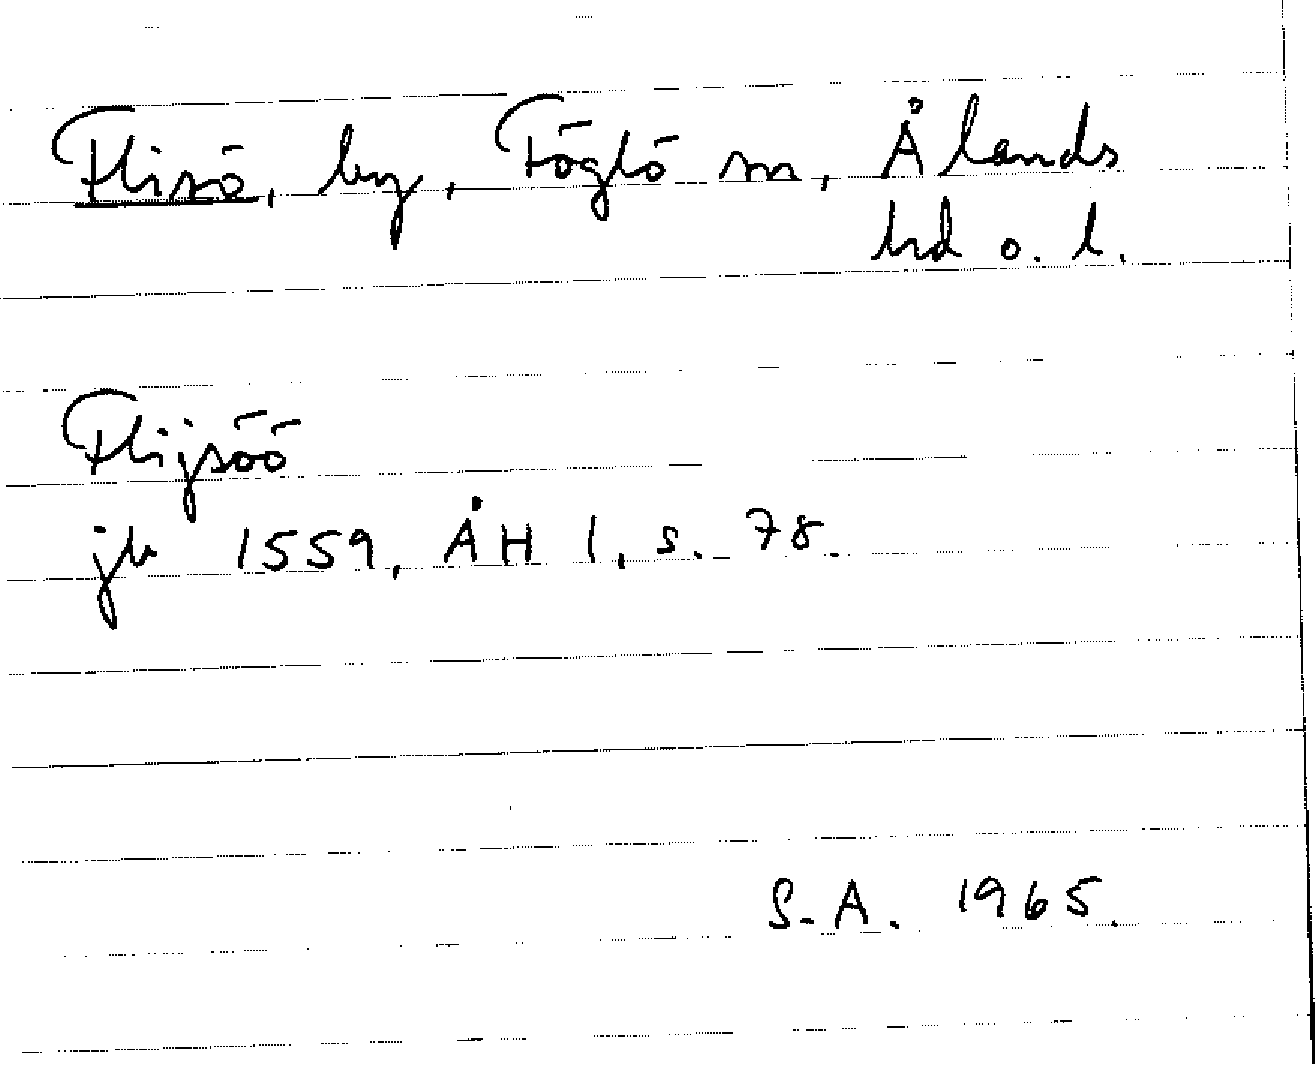 Flisö, by, Föglö sn, Ålands
hd o. l.
Flijsöö
jb 1559, ÅH 1, s. 78.
S-A. 1965.